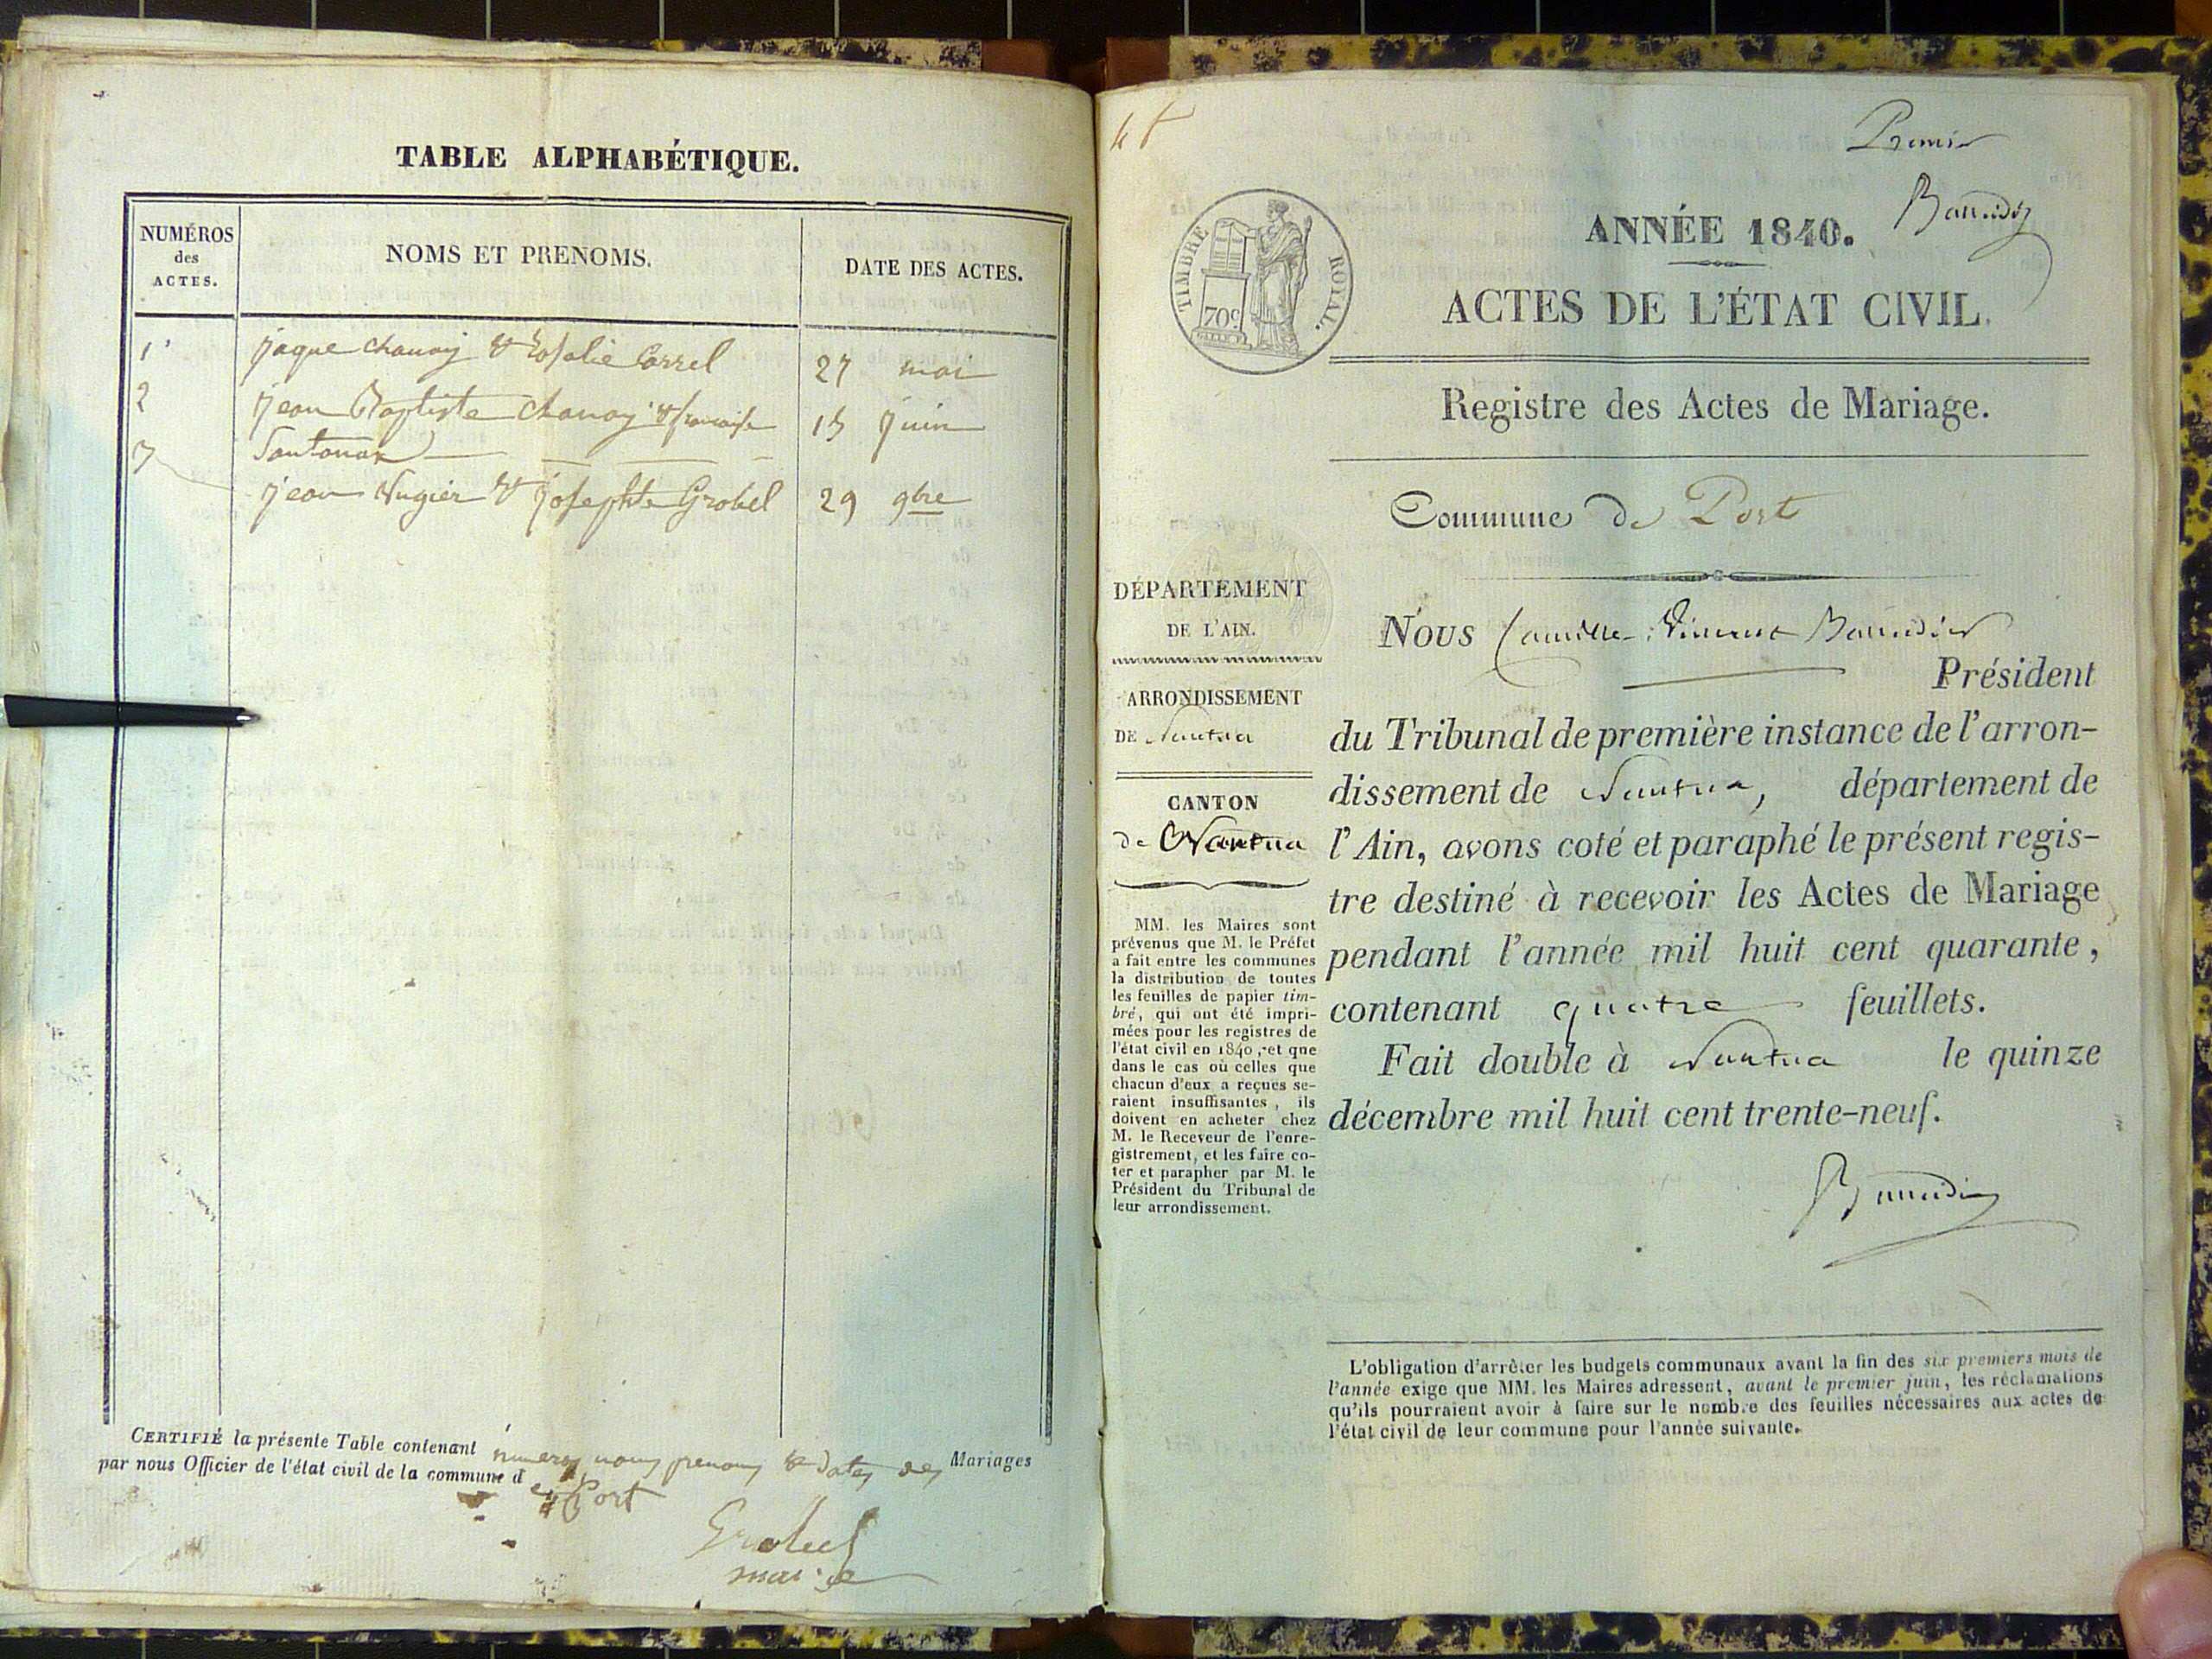 TABLE ALPHABÉTIQUE.
NUMÉROS
des
ACTES.
NOMS ET PRENOMS.
DATE DES ACTES.
1 jaque chanay & Rosalie Carrel 27 mai
2 jean Baptiste chanay & francoise 15 juin
3 Santonax
jean Nugier & josephte Grobel 29 9bre
CERTIFIÉ la présente Table contenant numeros noms prenoms & dates des Mariages
par nous Officier de l'état civil de la commune d
e Port
Grobel
maire
Premier
Baundier
TIMBRE ROYAL.
70c
ANNÉE 1840.
ACTES DE L'ÉTAT CIVIL.
Registre des Actes de Mariage.
Commune de Port
DÉPARTEMENT
DE L'AIN.
ARRONDISSEMENT
DE Nantua
CANTON
de Nantua
MM. les Maires sont
prévenus que M. le Préfet
a fait entre les communes
la distribution de toutes
les feuilles de papier tim-
bré, qui ont été impri-
mées pour les registres de
l'état civil en 1840, et que
dans le cas où celles que
chacun d'eux a reçues se-
raient insuffisantes, ils
doivent en acheter chez
M. le Receveur de l'enre-
gistrement, et les faire co-
ter et parapher par M. le
Président du Tribunal de
leur arrondissement.
Nous Camille Vincent
Président
du Tribunal de première instance de l'arron-
dissement de Nantua, département de
l'Ain, avons coté et paraphé le présent regis-
tre destiné à recevoir les Actes de Mariage
pendant l'année mil huit cent quarante,
contenant quatre feuillets.
Fait double à Nantua le quinze
décembre mil huit cent trente-neuf.
L'obligation d'arrêter les budgets communaux avant la fin des six premiers mois de
l'année exige que MM. les Maires adressent, avant le premier juin, les réclamations
qu'ils pourraient avoir à faire sur le nombre des feuilles nécessaires aux actes de
l'état civil de leur commune pour l'année suivante.